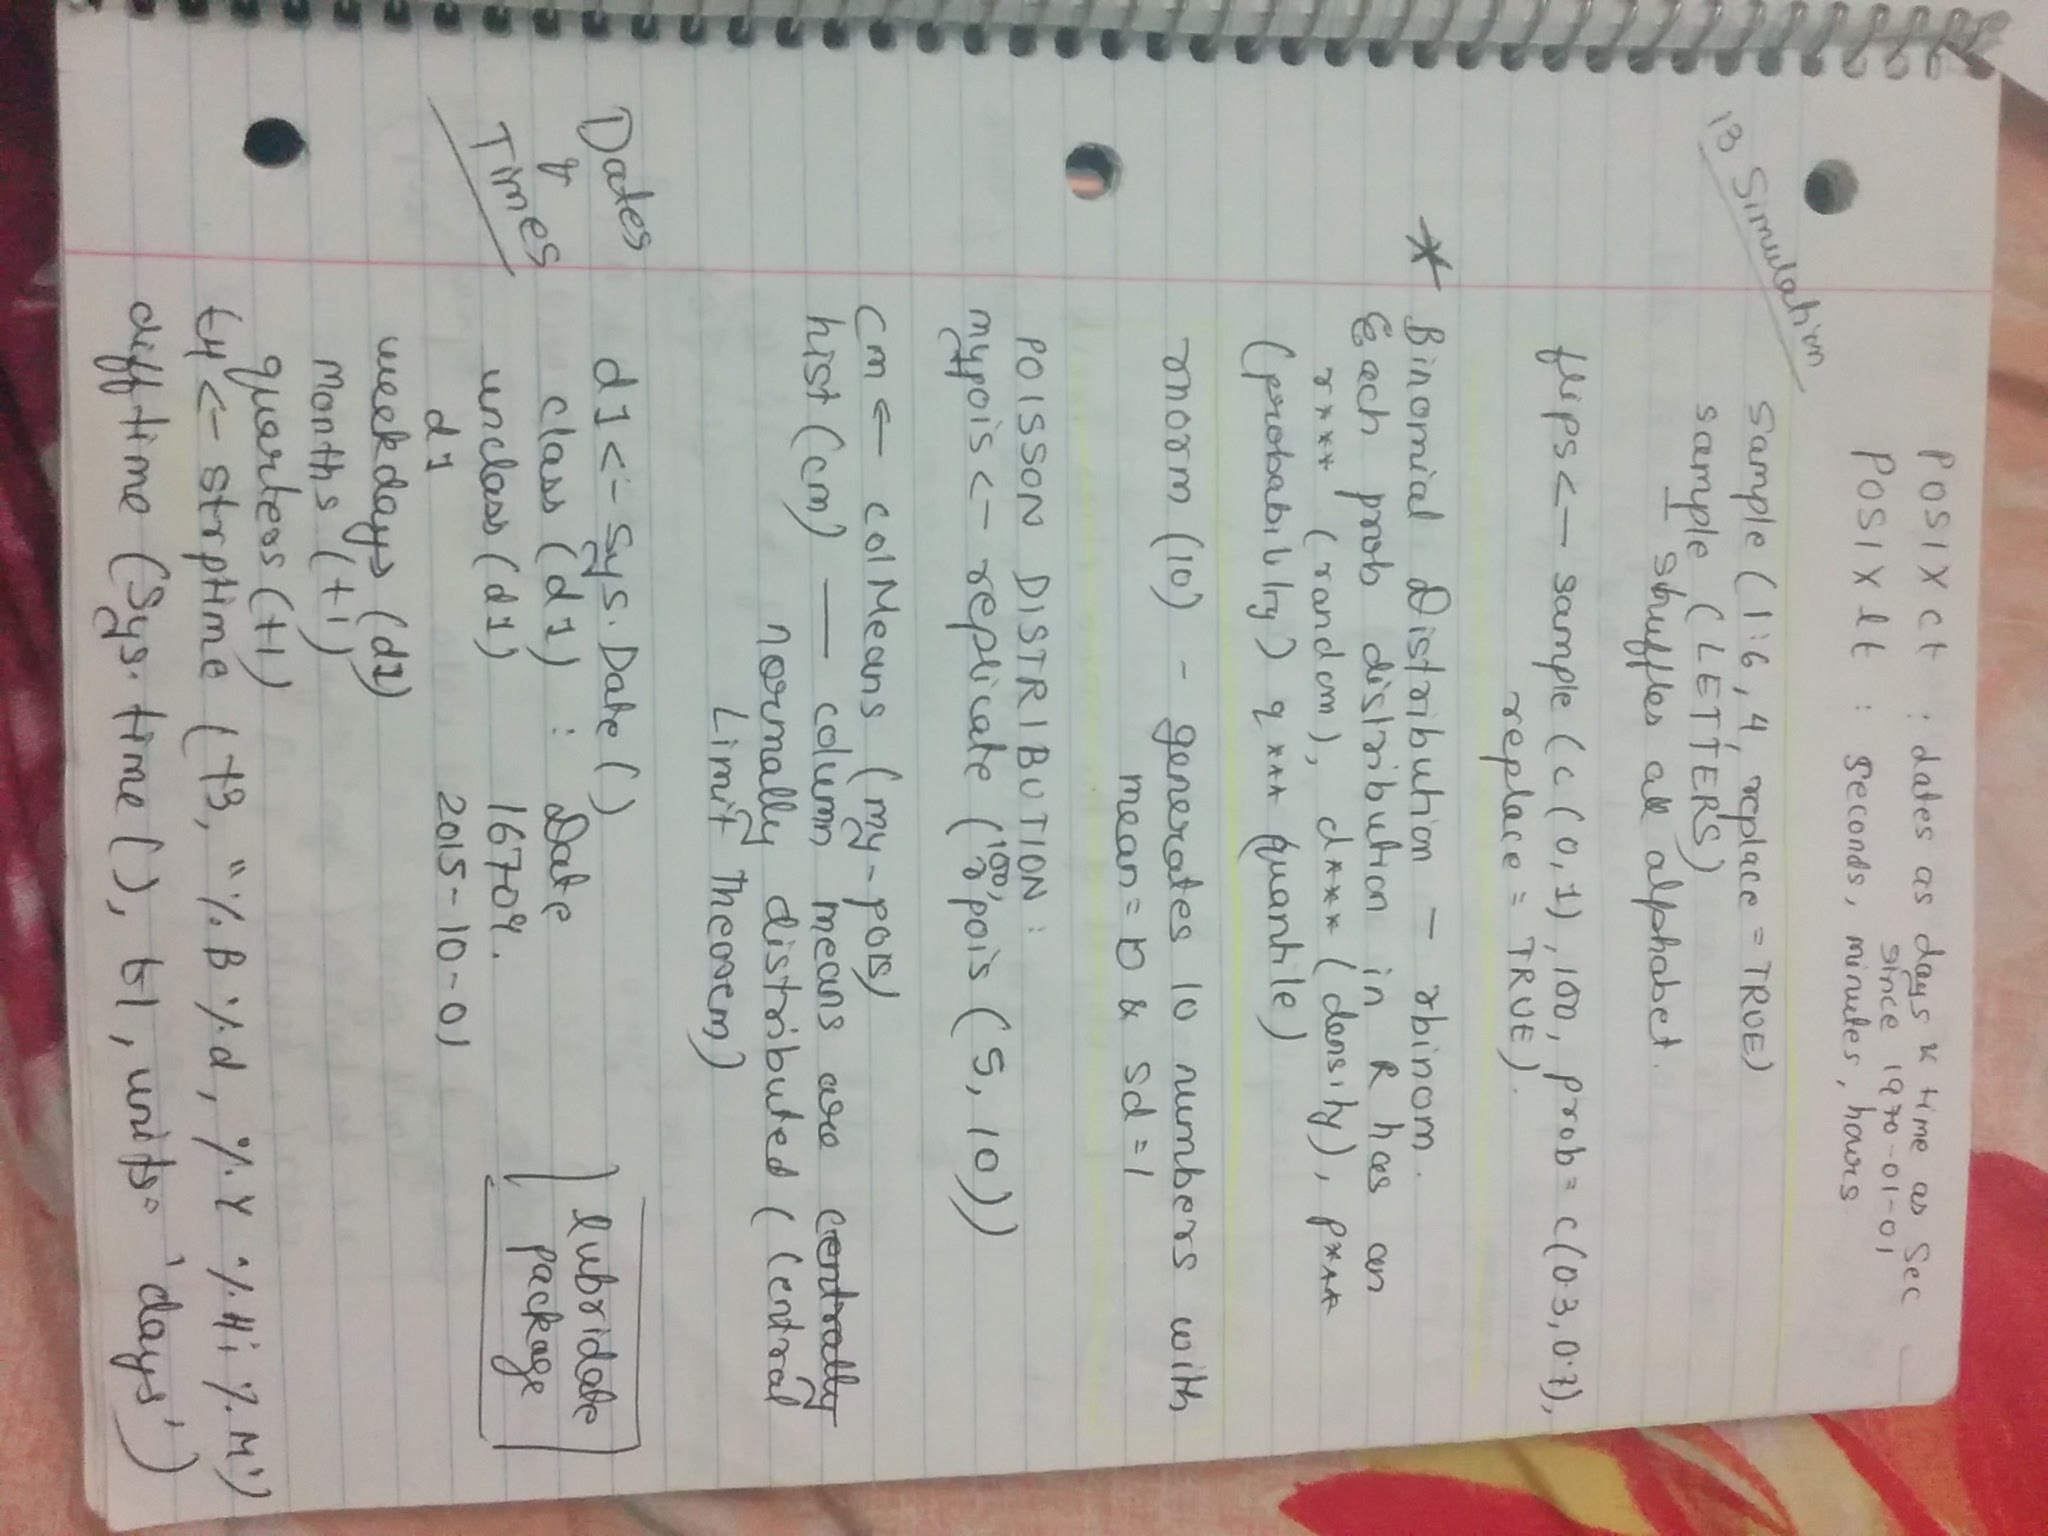 POSIXct : dates as days & time as sec
since 1970-01-01
POSIXlt : seconds, minutes, hours
13 Simulation
sample (1:6, 4, replace = TRUE)
sample (LETTERS)
- shuffles all alphabet.
flips <- sample (c(0,1), 100, prob = c(0.3, 0.7),
replace = TRUE).
* Binomial Distribution - rbinom.
Each prob distribution in R has an
r*** (random), d*** (density), p***
(probability) q*** (quantile)
rnorm (10) - generates 10 numbers with
mean = 0 & sd = 1
POISSON DISTRIBUTION:
mypois <- replicate (100, rpois (5, 10))
cm <- colMeans (my-pois)
hist (cm) — column means are centrally
normally distributed (Central
Limit Theorem)
Dates
&
Times
d1 <- Sys.Date ()
class (d1) : Date
unclass (d1) 16709.
d1 2015-10-01
lubridate
package
weekdays (d1)
months (t1)
quarters (t1)
t4 <- strptime (t3, "%B %d, %Y %H: %M")
difftime (Sys.time (), t1, units = 'days')